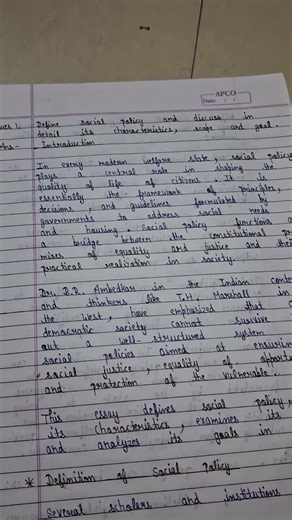 APCO
Date:
Ques 1. Define social policy and discuss in
detail its characteristics, scope and goal.
Ans- Introduction
In every modern welfare state, social policy
plays a central role in shaping the
quality of life of citizens. It is
essentially the framework of principles,
decisions, and guidelines formulated by
governments to address social needs
and housing. Social policy functions as
a bridge between the constitutional pro
mises of equality and justice and their
practical realization in society.
Dr. B.R. Ambedkar in the Indian cont
and thinkers like T.H. Marshall in
the West, have emphasized that a
democratic society cannot survive
out a well-structured system
social policies aimed at ensuring
social justice, equality of opport
and protection of the vulnerable.
This essay defines social policy,
its characteristics, examines its
and analyzes its goals in
* Definition of Social Policy
Several scholars and institutions